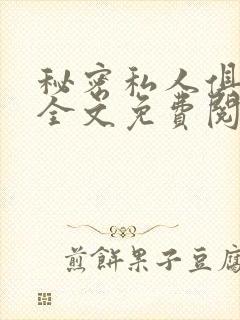 秘密私人俱
全文免費閱
煎餅果子豆腐